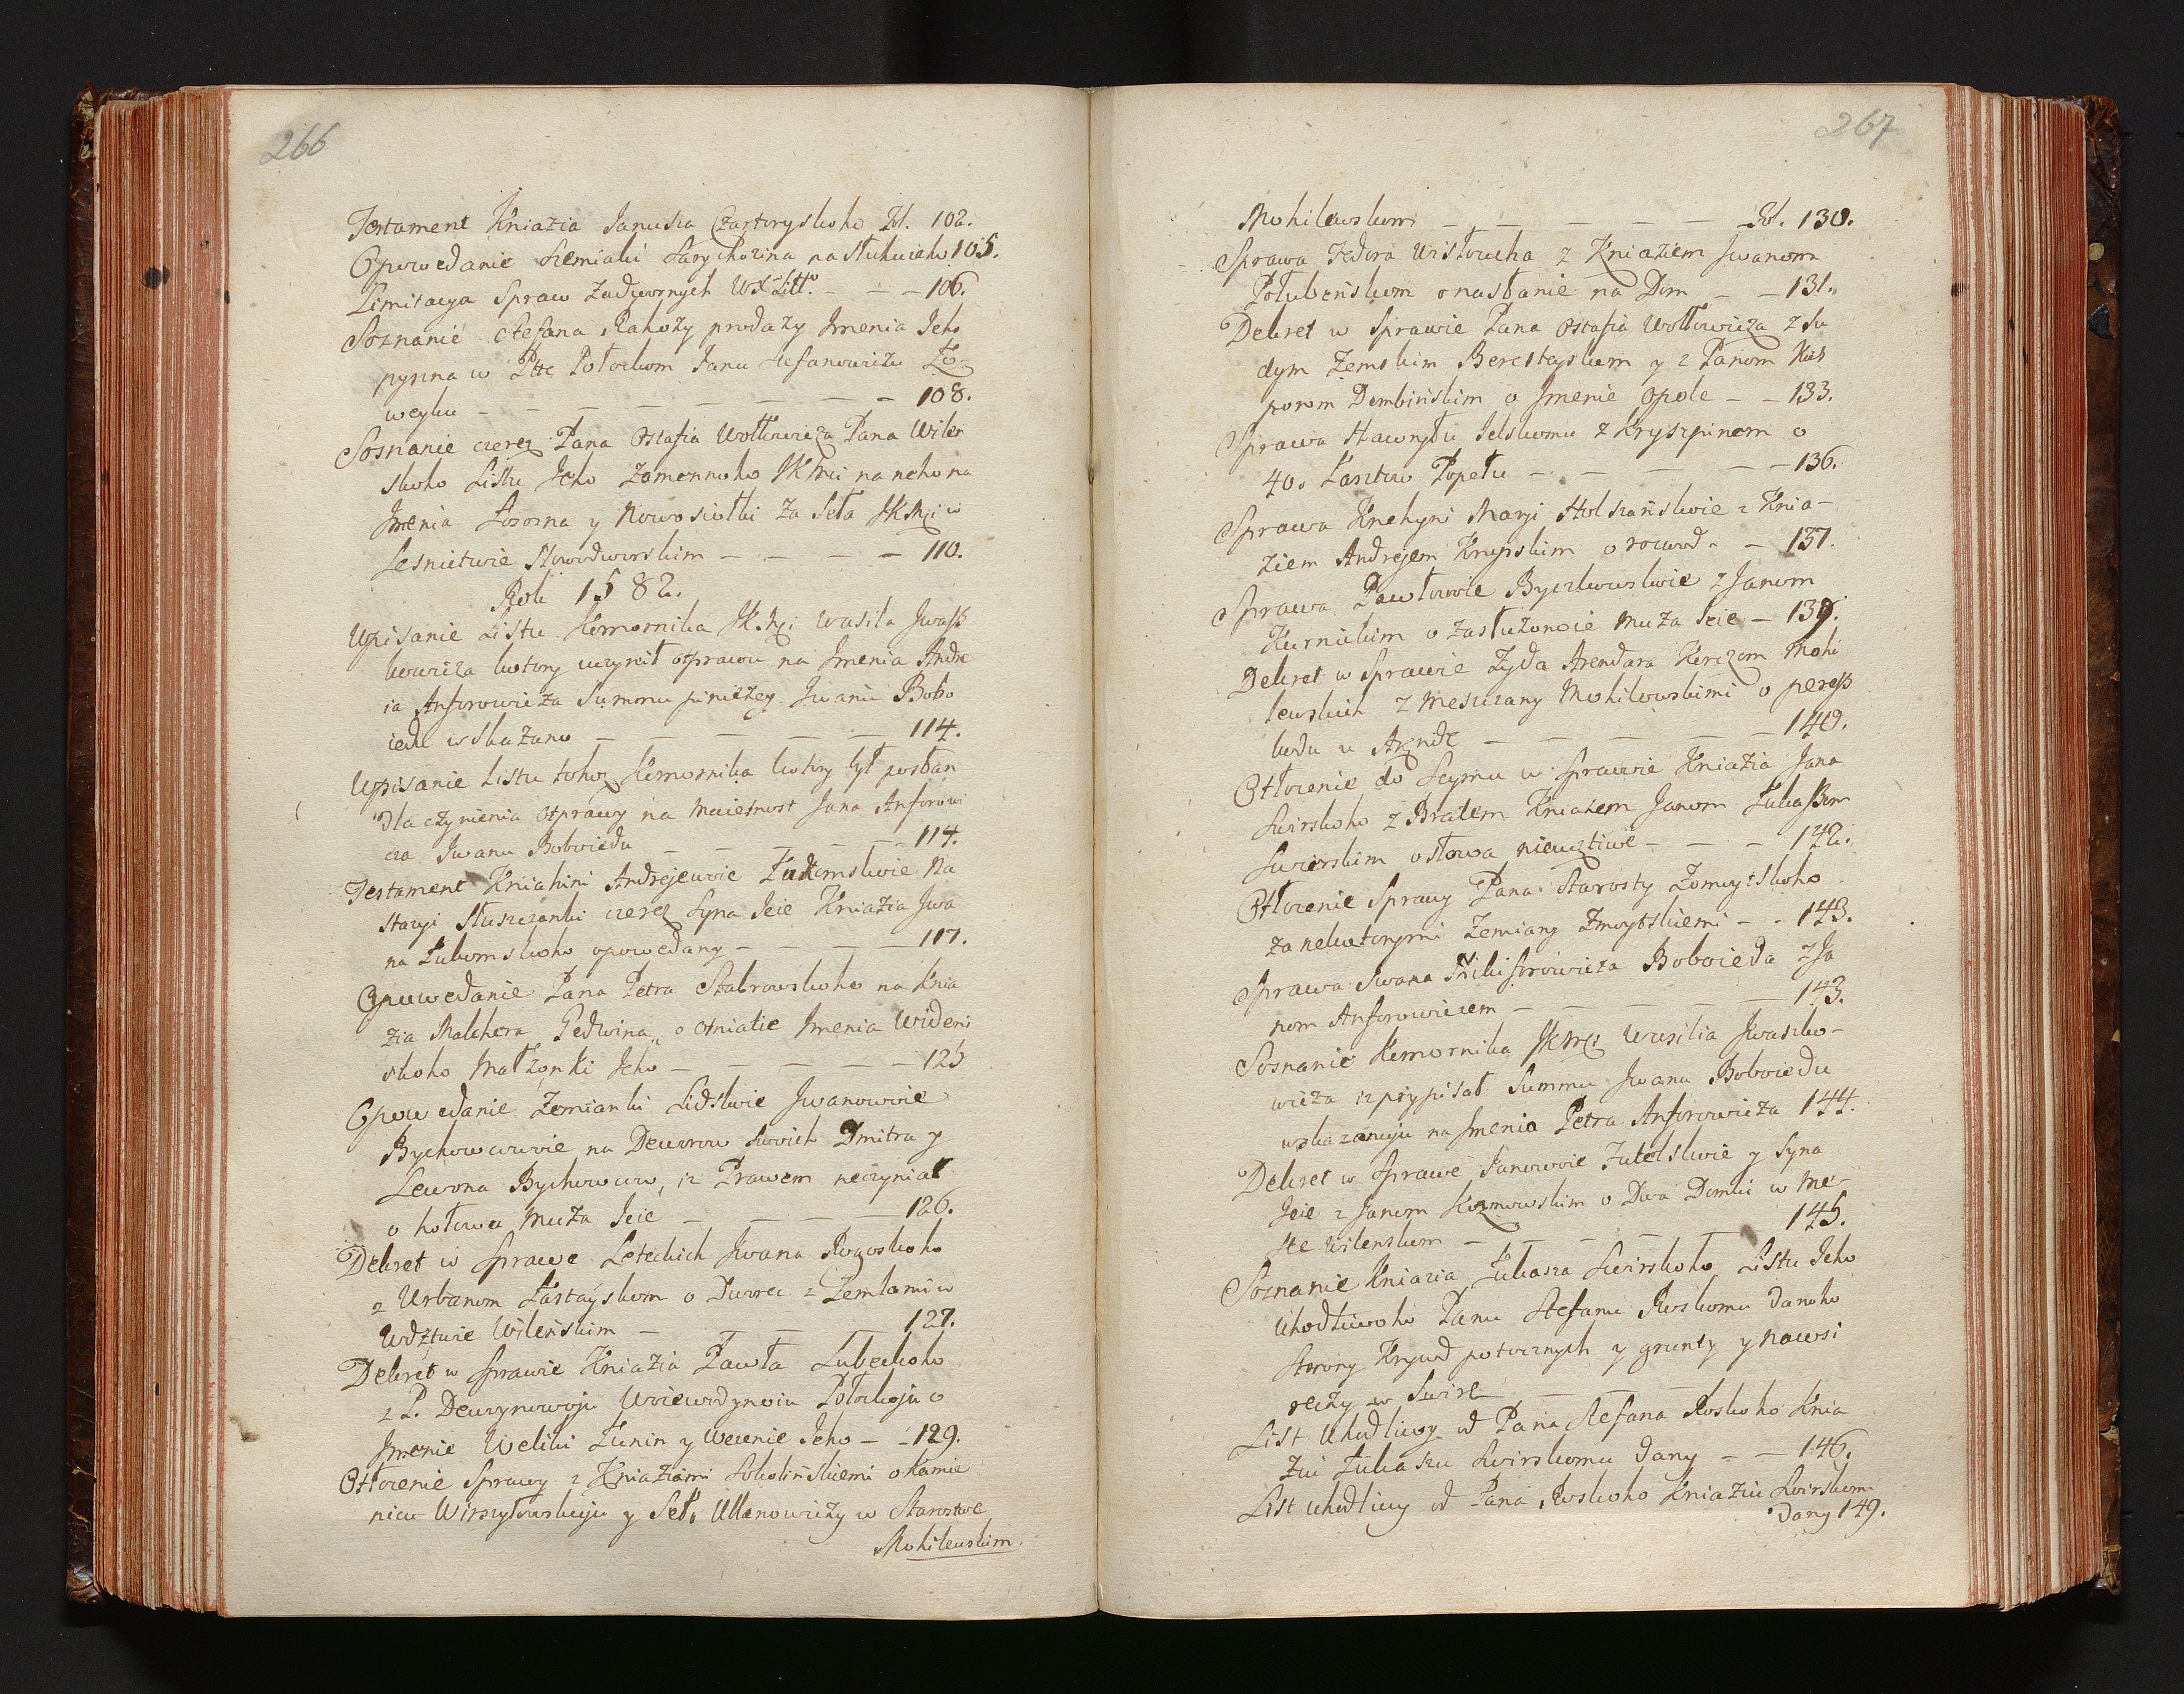 266
Testament Kniazia Janusza Czartoryskoho Fol. 102.
Opowedanie Siemiaki Sarychozina na Słuhuieho 105.
Limitacya Spraw Zadwornych WXLitt. - - - 106.
Soznanie Stefana Rahozy prodaży Jmenia Jeho
pyszna w Ptte Połockom Janu Stefanowiczu Ło-
weyku - - - - - - - - 108.
Soznanie czerez Pana Ostafia Wołłowicza Pana Wilen
skoho Listu Jeho Zamennoho JKMci na neho na
Jmenia Łososna y Nowosiołki za Seła JKMci w
Lesnictwie Nowodworskim - - - - 110.
Roku 1582.
Wpisanie Listu Komornika JKMci Wasila Jwaszk
kowicza kotory uczynił otprawu na Jmenia Andre
ia Anforowicza Summu piniezey Jwanu Bobo
iedu wskazanu - - - - - 114.
Wpisanie Listu tohoż Komornika kotory był posłan
dla czynienia otprawy na maietnost Jana Anforowi
cza Jwanu Boboiedu - - - - - 114.
Testament Kniahini Andrejewoie Łukomskoie Na
stazyi Słuszczanki czerez Syna Jeie Kniazia Jwa
na Łukomskoho opowedany - - - - 117.
Opowedanie Pana Petra Stabrowskoho na Knia
zia Malchera Gedwina o otniatie Jmenia Wideni
skoho Małżonki Jeho - - - - - 125
Opowedanie Zemianki Lidskoie Jwanowoie
Bychowcowoie na Deworow swoich Dmitra y
Lewona Bychowcow, iż Prawem neczyniat
o hołowu Muża Jeie - - - - 126.
Dekret w Sprawe Leteckich Jwana Rogoskoho
z Urbanom Łastayskom o Dworec z Zemlami w
Wdztwie Wilenskim - - - - 127.
Dekret w Sprawie Kniazia Pawła Lubeckoho
z P. Dewoynowoju Woiewodynoiu Połockoju o
Jmenie Weliki Łunin y Wecenie Jeho - - 129.
Otłożenie Sprawy z Kniaziami Sokolinskiemi o Kamie
nicu Wirszyłowskuju y Seło Ullanowiczy w Starostwe
Mohilewskim.
267
Mohilewskom - - - - - Fol. 130.
Sprawa Fedora Wisłoucha z Kniaziem Jwanom
Połubeńskom o nasłanie na Dom - - 131.
Dekret w Sprawie Pana Ostafia Wołłowicza z Su
dym Zemskim Beresteyskum y z Panom Kas
porom Dembińskim o Jmenie Opole - - 133.
Sprawa Hawryłu Jelskomu z Kryszpinom o
40. Łasztow Popełu - - - - - 136.
Sprawa Knehyni Maryi Holszańskoie z Knia-
ziem Andrejem Kurpskim o rozwod - - 137.
Sprawa Pawłowoie Byczkowskoie z Janom
Kurnickim o zasłużonoie Muża Jeie - 139.
Dekret w Sprawie Żyda Arendara Korczom Mohi
lewskich z Mesczany Mohilowskimi o peresz
kodu w Arende - - - - - 140.
Otłożenie do Seymu w Sprawie Kniazia Jana
Swirskoho z Bratem Kniazem Janom Łukaszem
Swirskim o słowa nieuztiwe - - - 142.
Otłożenie Sprawy Pana Starosty Żomoytskoho
za nekotorymi Zemiany Żmoytskiemi - - 143.
Sprawa Jwana Mikiforowicza Boboieda z Ja
nom Anforowiczem - - - - - 143.
Soznanie Komornika JKMci Wasilia Jwaszko-
wicza iz prypisał Summu Jwanu Boboiedu
wskazanuju na Jmenia Petra Anforowicza 144.
Dekret w Sprawe Janowoie Zutelskoie y Syna
Jeie z Janom Kozmowskim o Dwa Domki w Me-
ste Wilenskom - - - - - 145.
Soznanie Kniazia Łukasza Swirskoho Listu Jeho
Uhodliwoho Panu Stefanu Rwskomu danoho
Strony Krywd potocznych y grunty y nawsi
reczy w Swire - - - -
List Uhodliwy od Pana Stefana Roskoho Knia
ziu Łukaszu Swirskomu dany - - 146.
List uhodliwy od Pana Rwskoho Kniaziu Swirskom
dany 149.